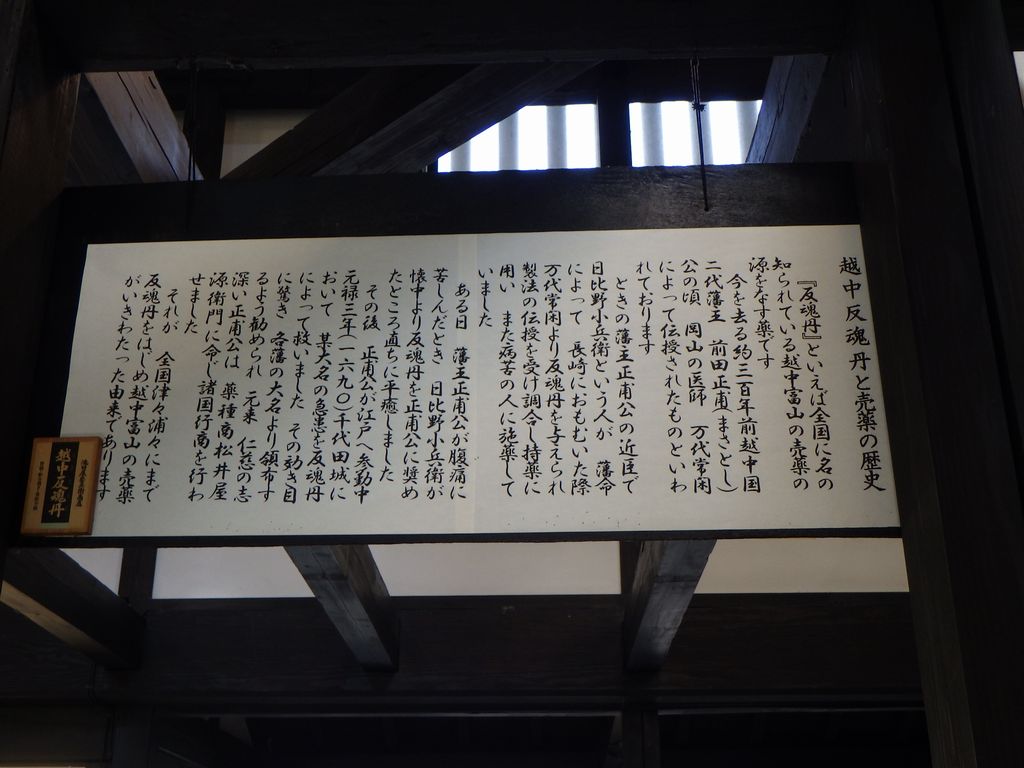 越中反魂丹と売薬の歴史
『反魂丹』といえば全国に名の
知られている越中富山の売薬の
源をなす薬です
今を去る約三百年前越中国
二代藩主 前田正甫(まさとし)
公の頃 岡山の医師 万代常閑
によって伝授されたものといわ
れております
ときの藩主正甫公の近臣で
日比野小兵衛という人が 藩命
によって 長崎におもむいた際
万代常閑より反魂丹を与えられ
製法の伝授を受け調合し持薬に
用い また病苦の人に施薬して
いました
ある日 藩主正甫公が腹痛に
苦しんだとき 日比野小兵衛が
懐中より反魂丹を正甫公に奨め
たところ直ちに平癒しました
その後 正甫公が江戸へ参勤中
元禄三年(一六九〇)千代田城に
おいて 某大名の急患を反魂丹
によって救いました その効き目
に驚き 各藩の大名より領布す
るよう勧められ 元来 仁慈の志
深い正甫公は 薬種商松井屋
源衛門に命じ諸国行商を行わ
せました
それが 全国津々浦々にまで
反魂丹をはじめ越中富山の売薬
がいきわたった由来であります
越中反魂丹